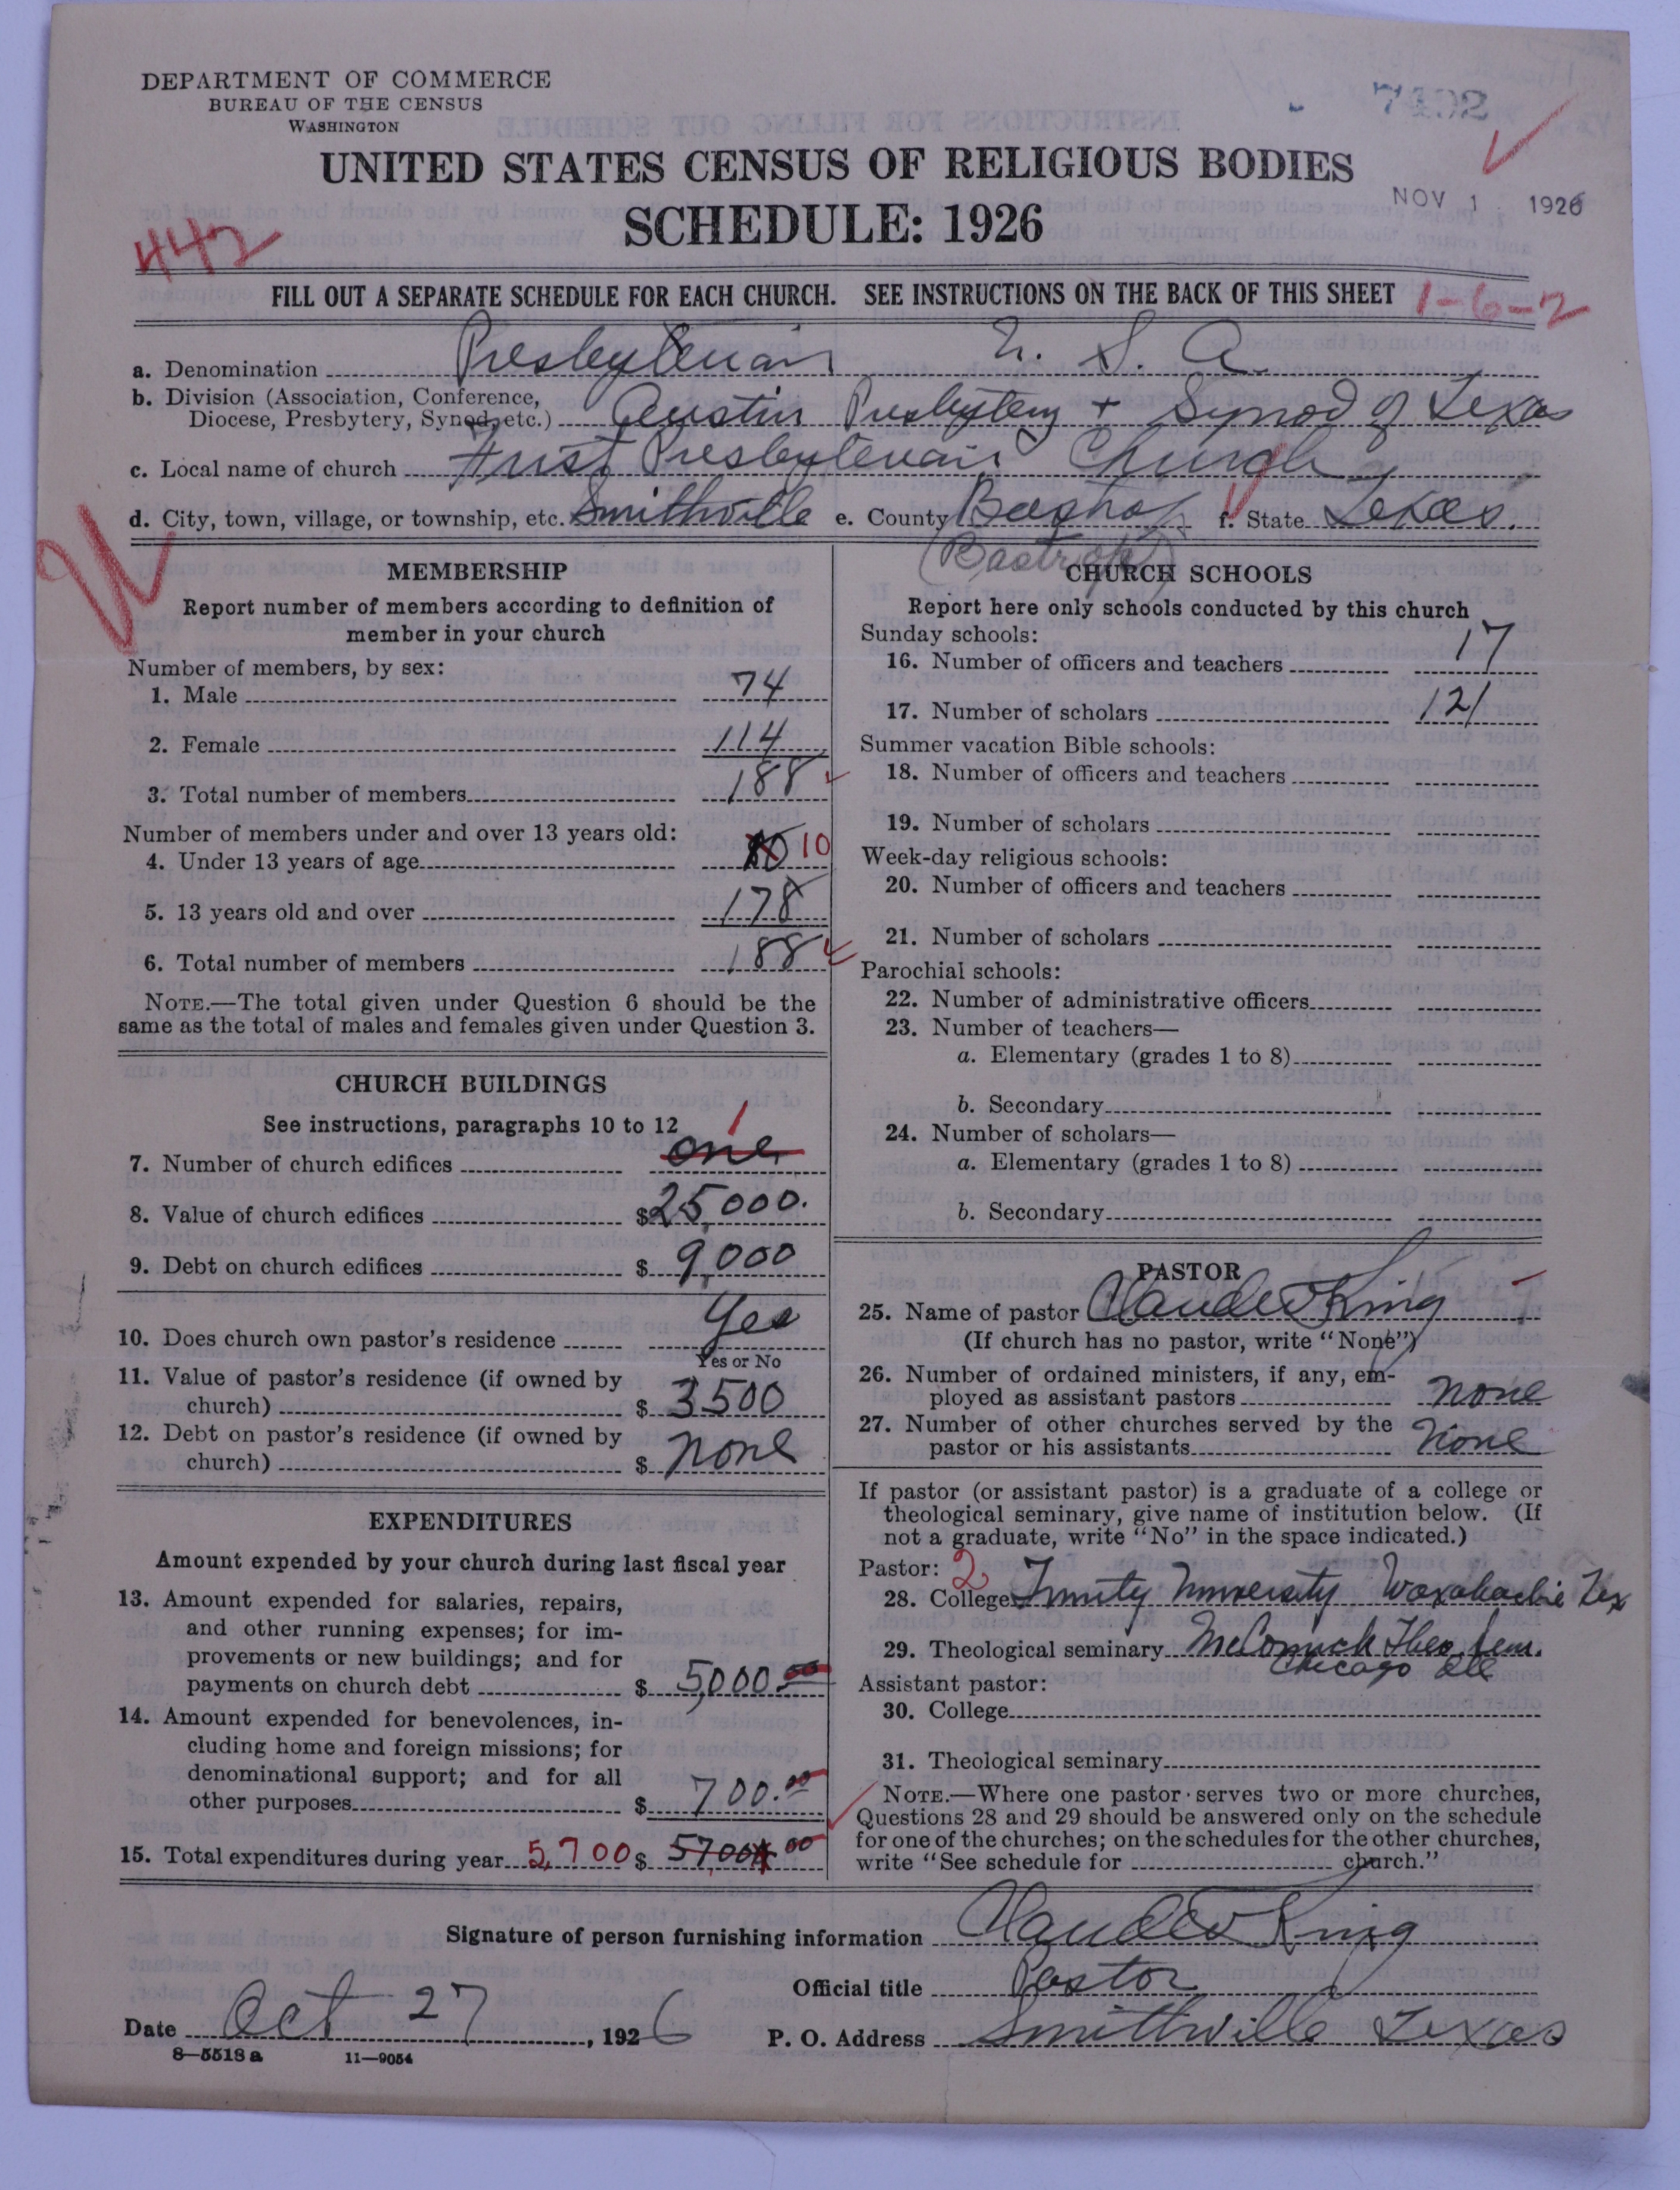 DEPARTMENT OF COMMERCE
BUREAU OF THE CENSUS
WASHINGTON
UNITED STATES CENSUS OF RELIGIOUS BODIES
NOV 1 1926
SCHEDULE: 1926
442
FILL OUT A SEPARATE SCHEDULE FOR EACH CHURCH. SEE INSTRUCTIONS ON THE BACK OF THIS SHEET 1-6-2
a. Denomination Presbyterian U. S. A.
b. Division (Association, Conference,
Diocese, Presbytery, Synod, etc.) Austin Presbytery + Synod of Texas
c. Local name of church First Presbyterian Church
d. City, town, village, or township, etc. Smithville e. County f. State Texas.
(Bastrop)
MEMBERSHIP
Report number of members according to definition of
member in your church
Number of members, by sex:
1. Male 74
2. Female 114
3. Total number of members 188
Number of members under and over 13 years old:
4. Under 13 years of age 10 10
5. 13 years old and over 178
6. Total number of members 188
NOTE.—The total given under Question 6 should be the
same as the total of males and females given under Question 3.
CHURCH BUILDINGS
See instructions, paragraphs 10 to 12
7. Number of church edifices one 1
8. Value of church edifices $25,000.
9. Debt on church edifices $ 9,000
10. Does church own pastor's residence Yes
Yes or No
11. Value of pastor's residence (if owned by
church) $ 3500
12. Debt on pastor's residence (if owned by
church) $ none
EXPENDITURES
Amount expended by your church during last fiscal year
13. Amount expended for salaries, repairs,
and other running expenses; for im-
provements or new buildings; and for
payments on church debt $ 5,000.00
14. Amount expended for benevolences, in-
cluding home and foreign missions; for
denominational support; and for all
other purposes $ 700.00
15. Total expenditures during year 5,700 $ 5700 00
CHURCH SCHOOLS
Report here only schools conducted by this church
Sunday schools:
16. Number of officers and teachers 17
17. Number of scholars 121
Summer vacation Bible schools:
18. Number of officers and teachers
19. Number of scholars
Week-day religious schools:
20. Number of officers and teachers
21. Number of scholars
Parochial schools:
22. Number of administrative officers
23. Number of teachers—
a. Elementary (grades 1 to 8)
b. Secondary
24. Number of scholars—
a. Elementary (grades 1 to 8)
b. Secondary
PASTOR
25. Name of pastor Claude King
(If church has no pastor, write "None")
26. Number of ordained ministers, if any, em-
ployed as assistant pastors none
27. Number of other churches served by the
pastor or his assistants None
If pastor (or assistant pastor) is a graduate of a college or
theological seminary, give name of institution below. (If
not a graduate, write "No" in the space indicated.)
Pastor: 2
28. College Trinity University Waxahachie Tex
29. Theological seminary McCormick Theo. Sem.
Chicago Ill
Assistant pastor:
30. College
31. Theological seminary
NOTE.—Where one pastor serves two or more churches,
Questions 28 and 29 should be answered only on the schedule
for one of the churches; on the schedules for the other churches,
write "See schedule for church."
Signature of person furnishing information Claude King
Official title Pastor
Date Oct 27, 1926 P. O. Address Smithville Texas
8—5518a 11—9054